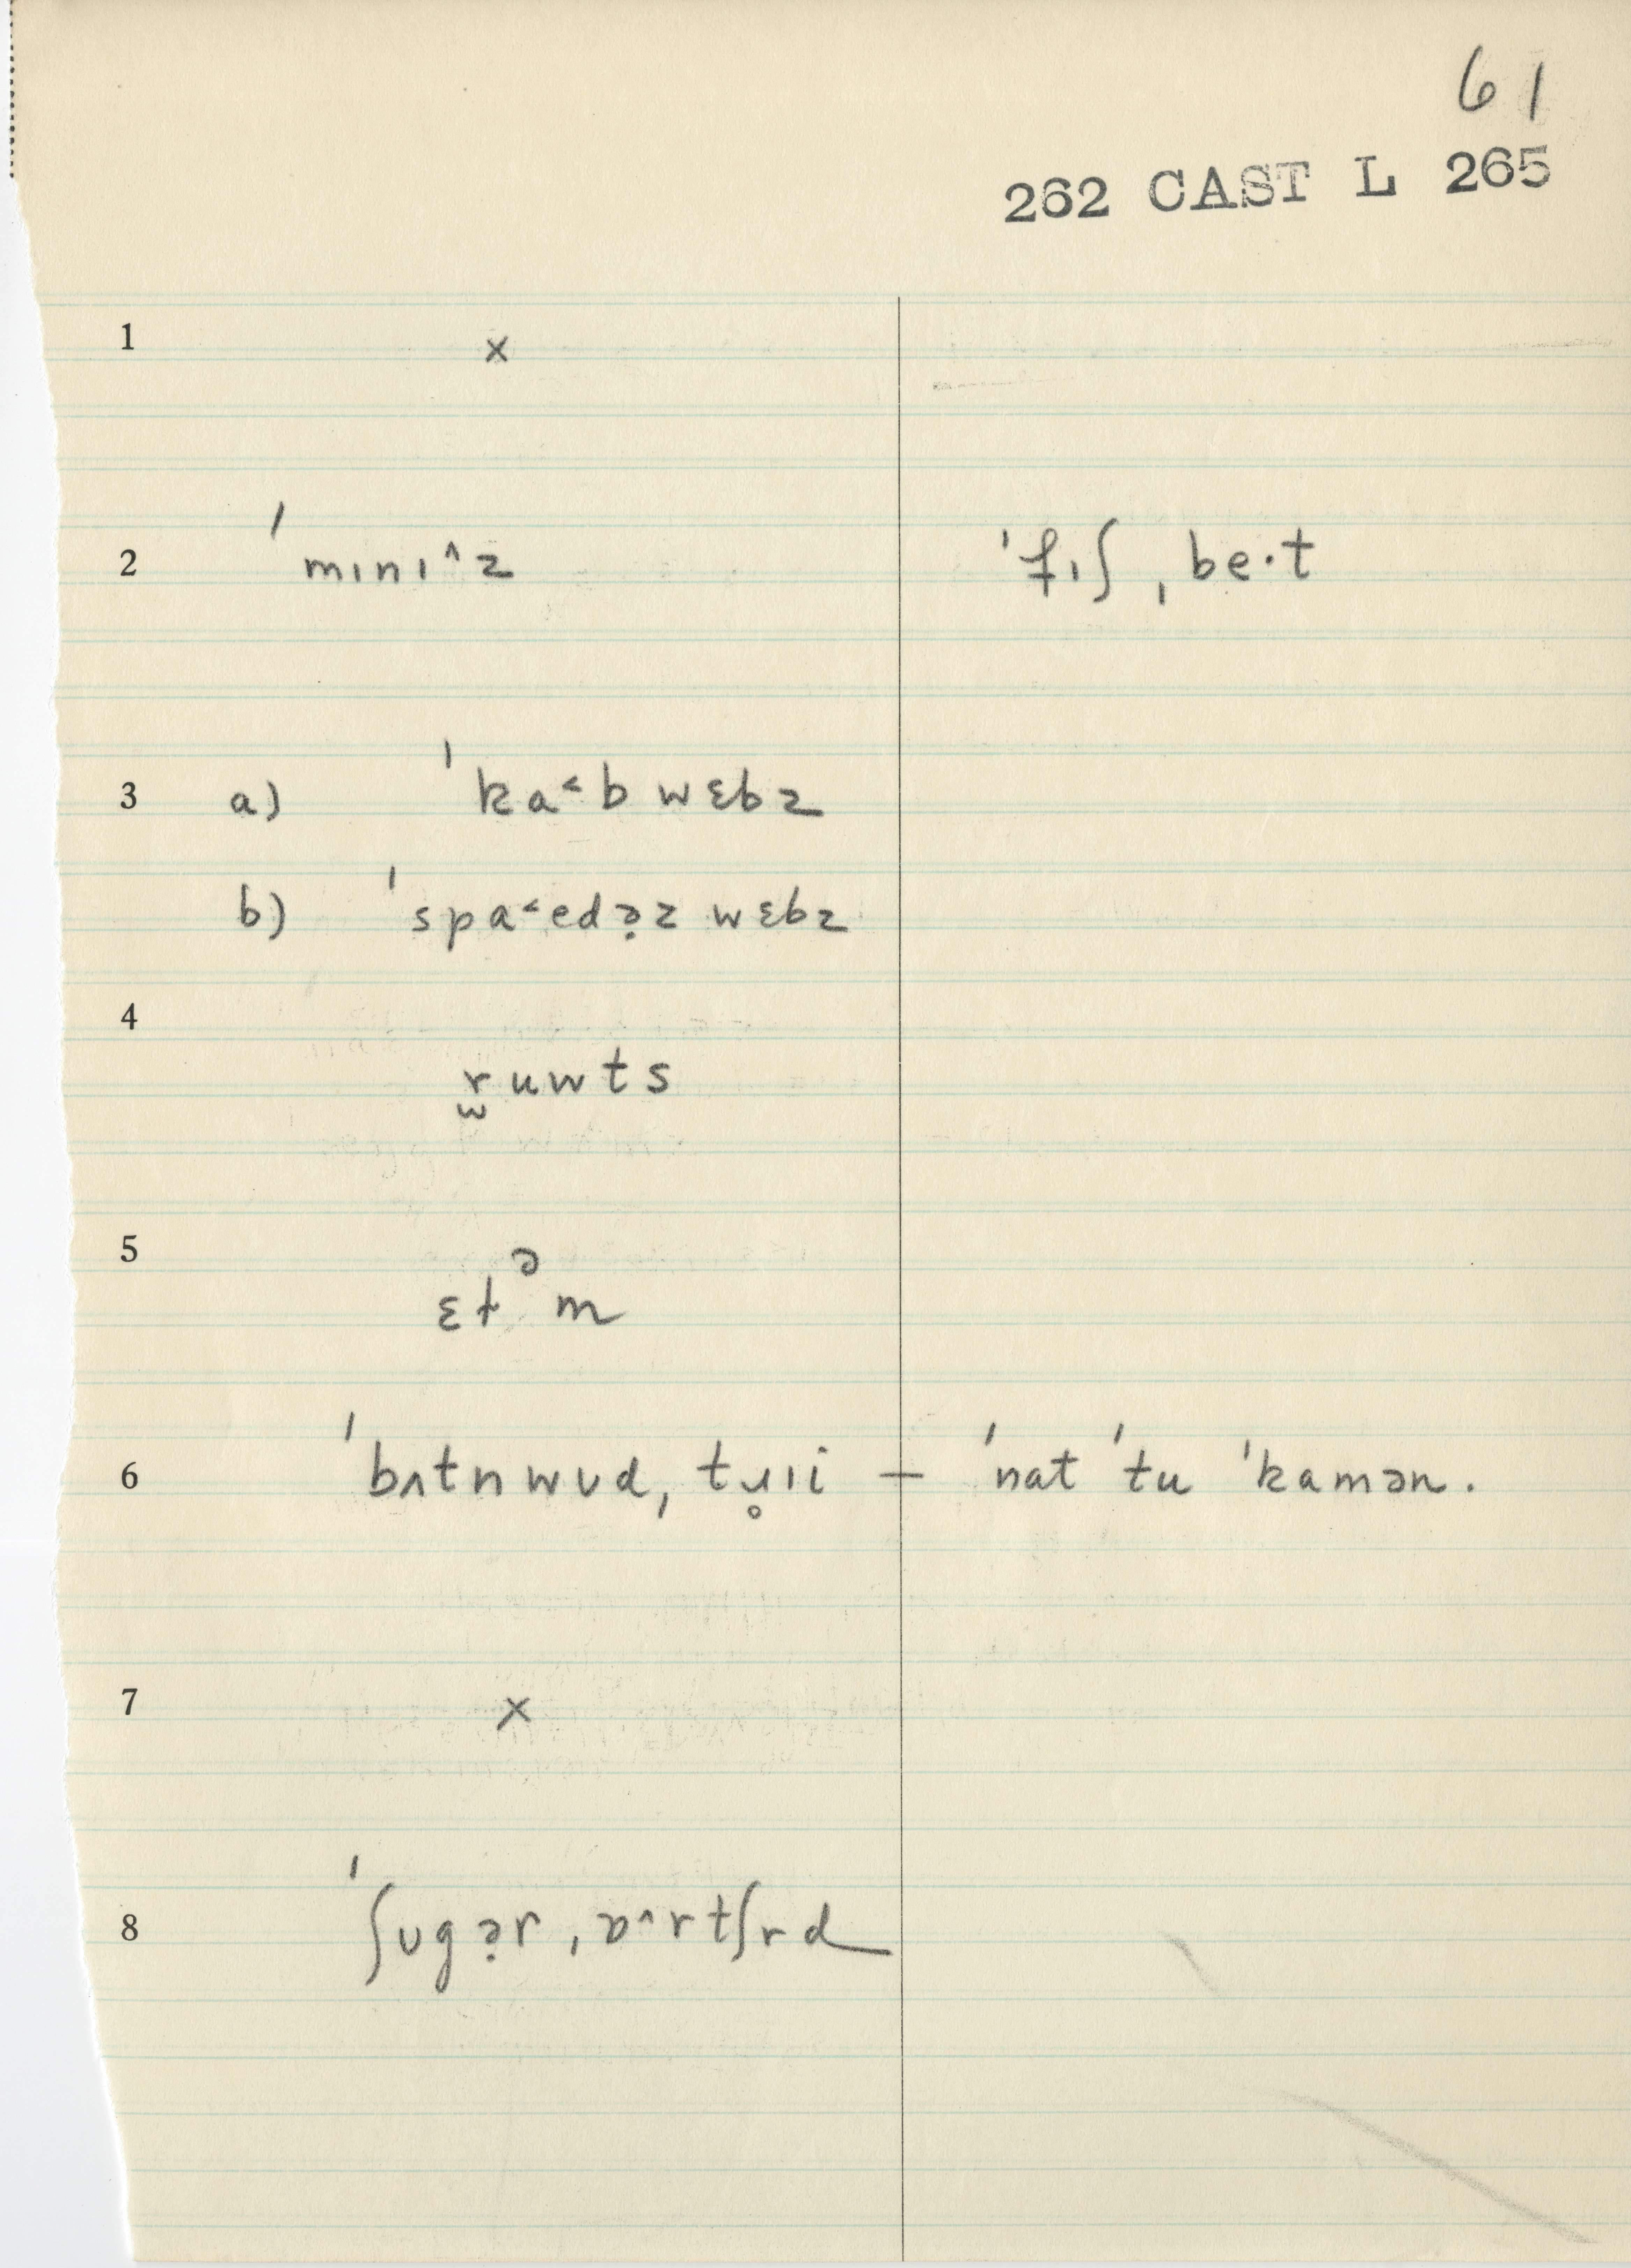 61
262 CAST L 265
1 ×
2 ˈmɪnɪ^z ˈfɪʃˌbe·t
3 a) ˈka˂b wɛbz
b) ˈspa˂edə̣z wɛbz
4
r̫uwts
5
ɛtᵊm
6 ˈbʌtnwʊdˌtɹ̥ɪi – ˈnat ˈtu ˈkamən.
7 ×
8 ˈʃʊgə̣rˌɒ^rtʃrd